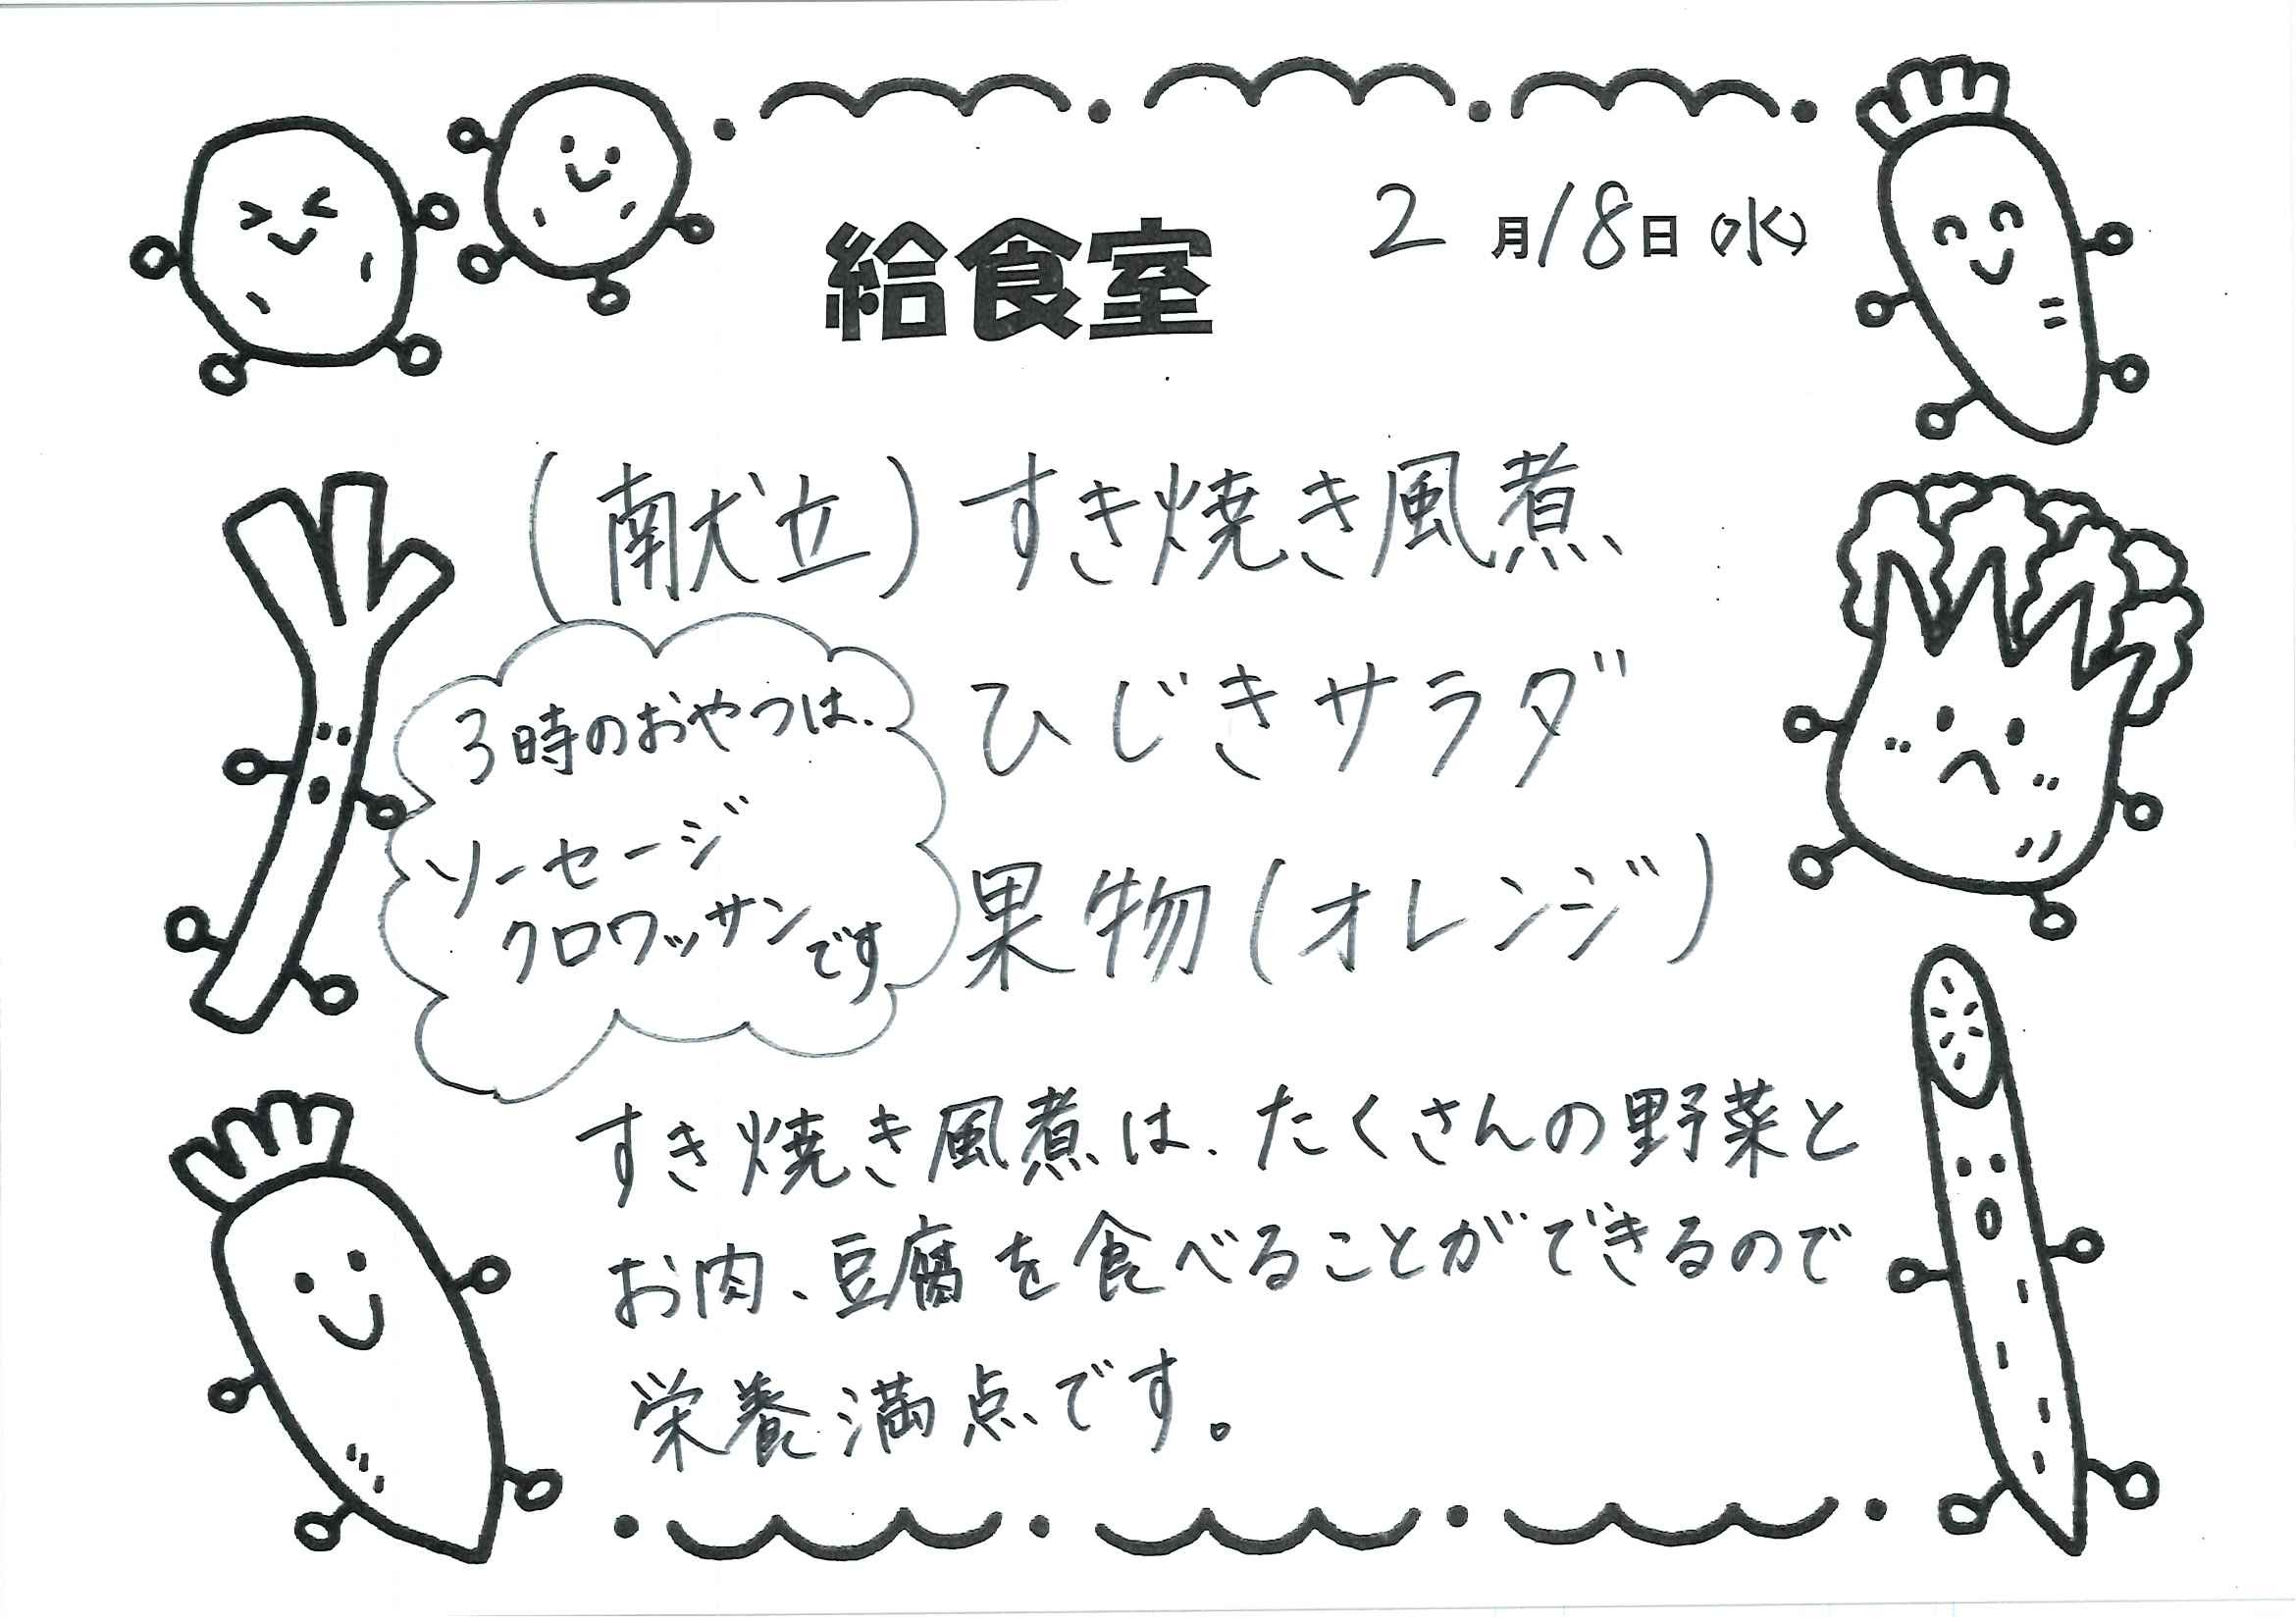 給食室
2月18日(水)
(献立)すき焼き風煮
ひじきサラダ
果物(オレンジ)
3時のおやつは、
ソーセージ
クロワッサンです
すき焼き風煮は、たくさんの野菜と
お肉、豆腐を食べることができるので
栄養満点です。